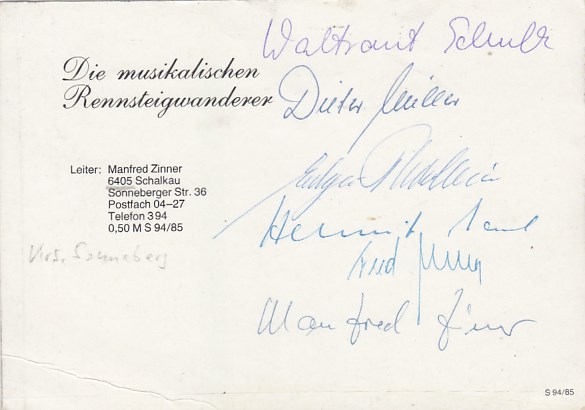 Waltraut Schulz
Die musikalischen
Rennsteigwanderer
Dieter Müller
Leiter: Manfred Zinner
6405 Schalkau
Sonneberger Str. 36
Postfach 04–27
Telefon 394
0,50 M S 94/85
Krs. Sonneberg
Manfred Zinner
S 94/85